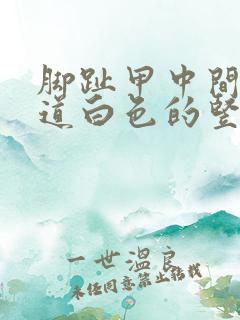 脚趾甲中间
道白色的竖
一世温良
未经同意禁止转载